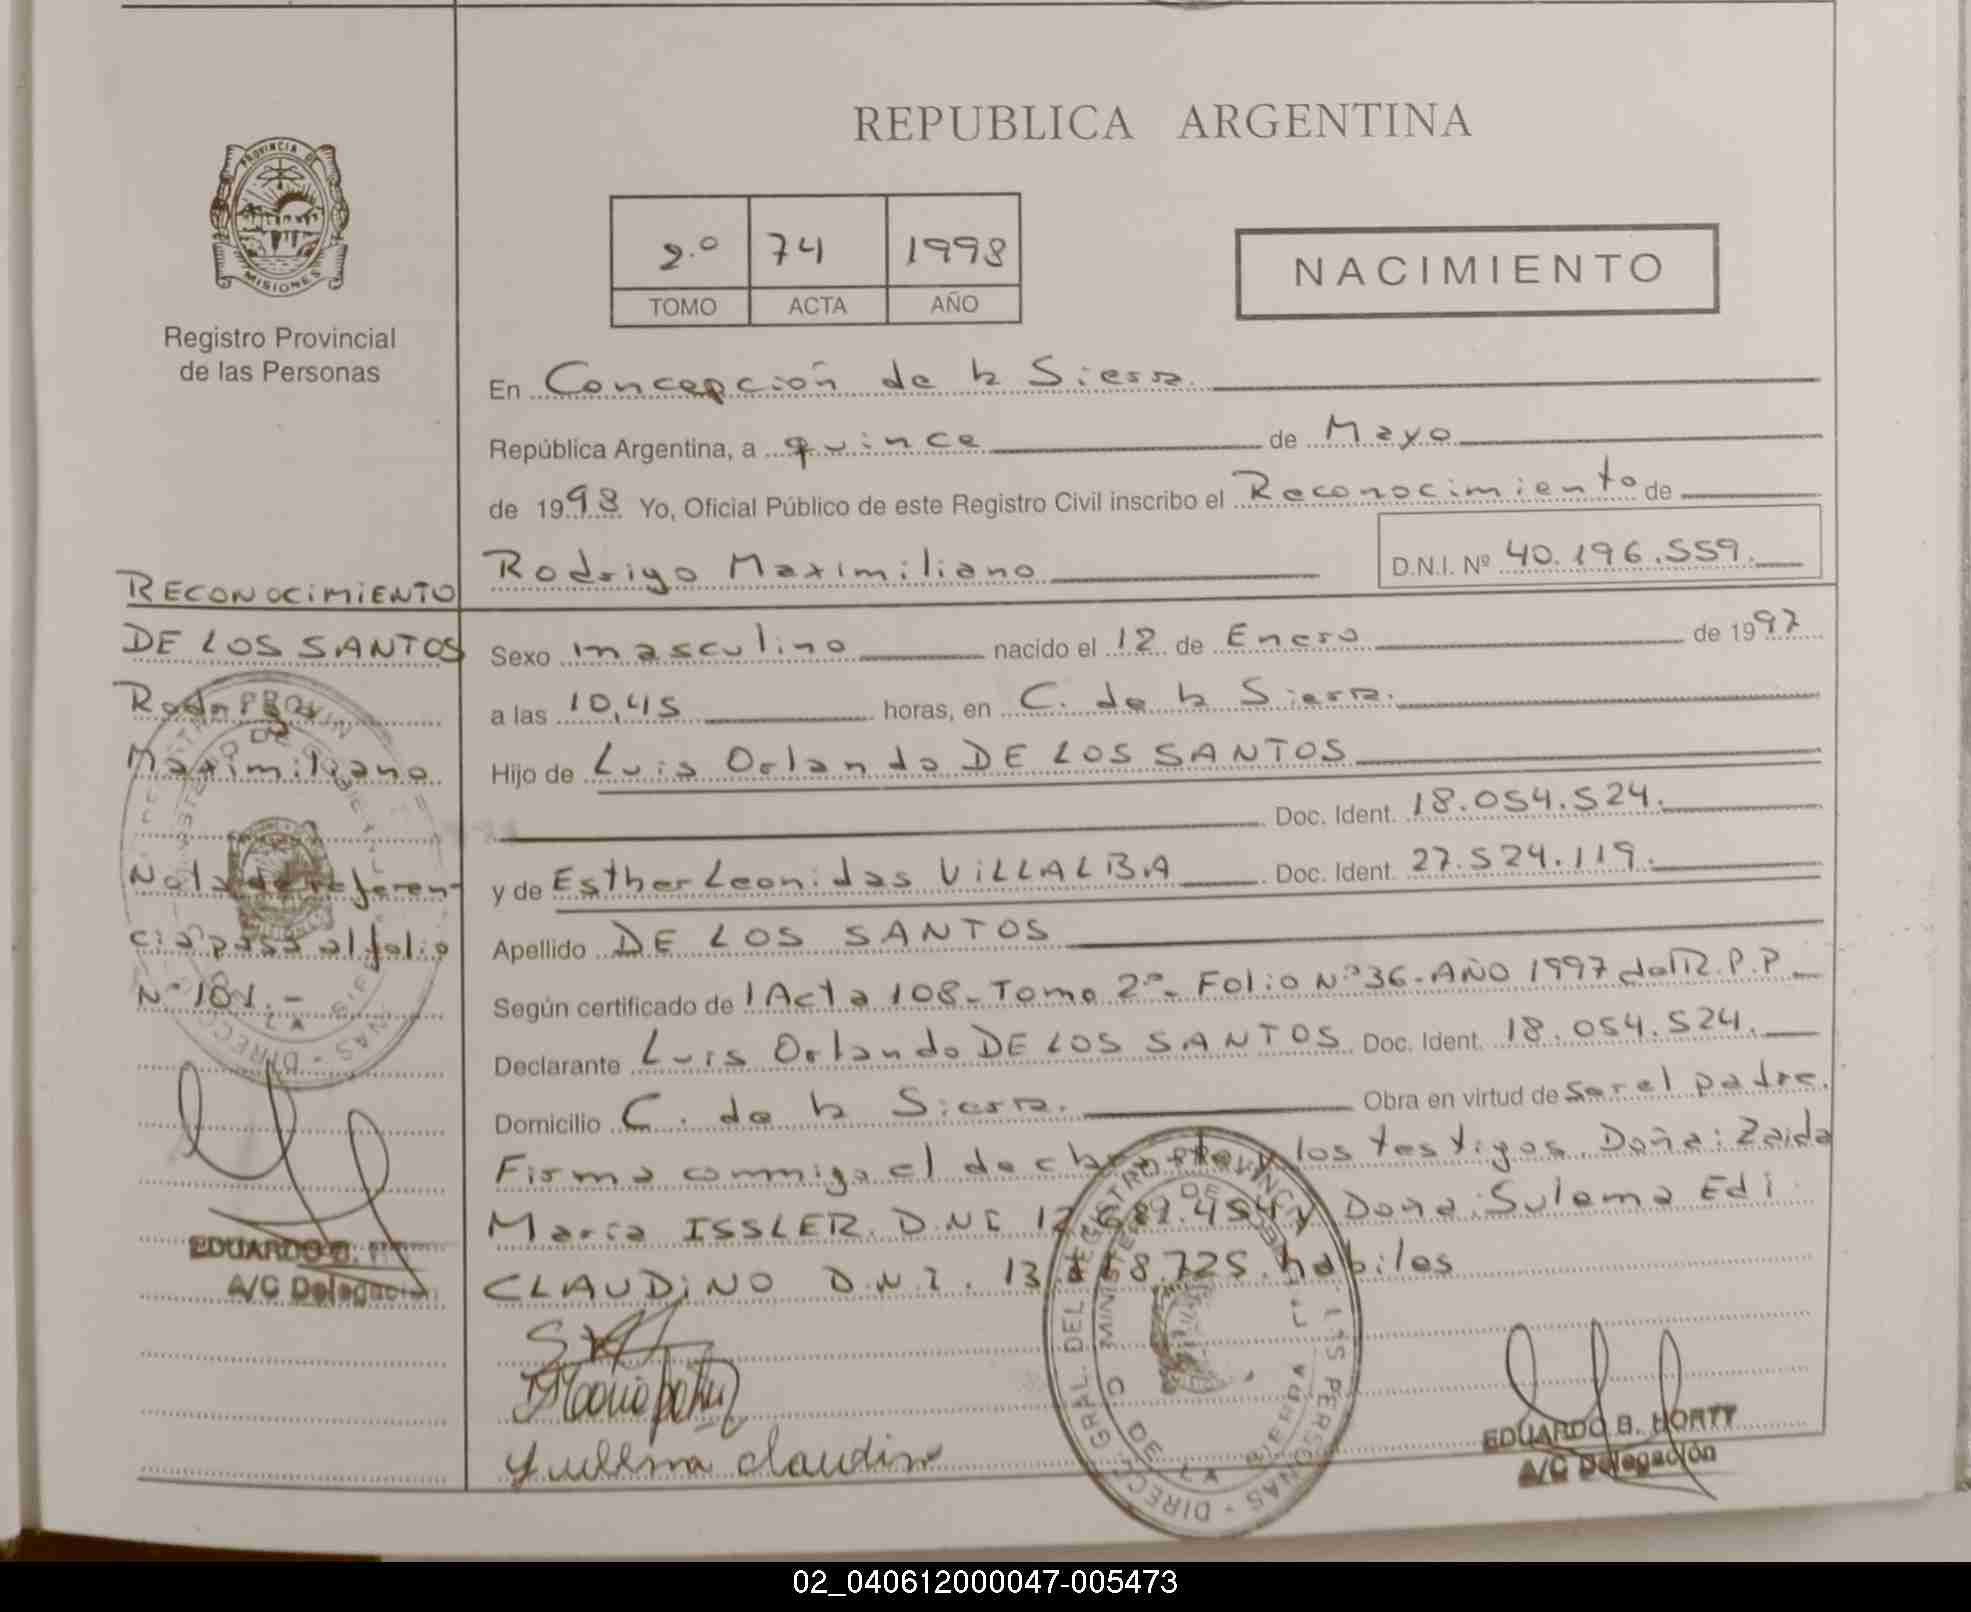 REPUBLICA ARGENTINA
PROVINCIA DE
MISIONES
Registro Provincial
de las Personas
2.º 74 1998
TOMO ACTA AÑO
NACIMIENTO
En Concepción de la Sierra.
República Argentina, a quince de Mayo
de 1998 Yo, Oficial Público de este Registro Civil inscribo el Reconocimiento de
Rodrigo Maximiliano D.N.I. Nº 40.196.559.
RECONOCIMIENTO
DE LOS SANTOS
Rodrigo
Maximiliano
Nota de referen-
cia pasa al folio
Nº 181.-
EDUARDO B.
A/C Delegación
Sexo masculino nacido el 12 de Enero de 1997
a las 10,45 horas, en C. de la Sierra.
Hijo de Luis Orlando DE LOS SANTOS
Doc. Ident. 18.054.524.
y de Esther Leonidas VILLALBA Doc. Ident. 27.524.119.
Apellido DE LOS SANTOS
Según certificado de 1 Acta 108- Tomo 2º- Folio Nº 36- AÑO 1997 del R.P.P.
Declarante Luis Orlando DE LOS SANTOS Doc. Ident. 18.054.524.
Domicilio C. de la Sierra. Obra en virtud de ser el padre.
Firma conmigo el declarante y los testigos Doña: Zaida
María ISSLER D.N.I. y Doña: Sulema Edi
CLAUDINO D.N.I. habiles
Yullema Claudino
EDUARDO B. HORTT
A/C Delegación
02_040612000047-005473